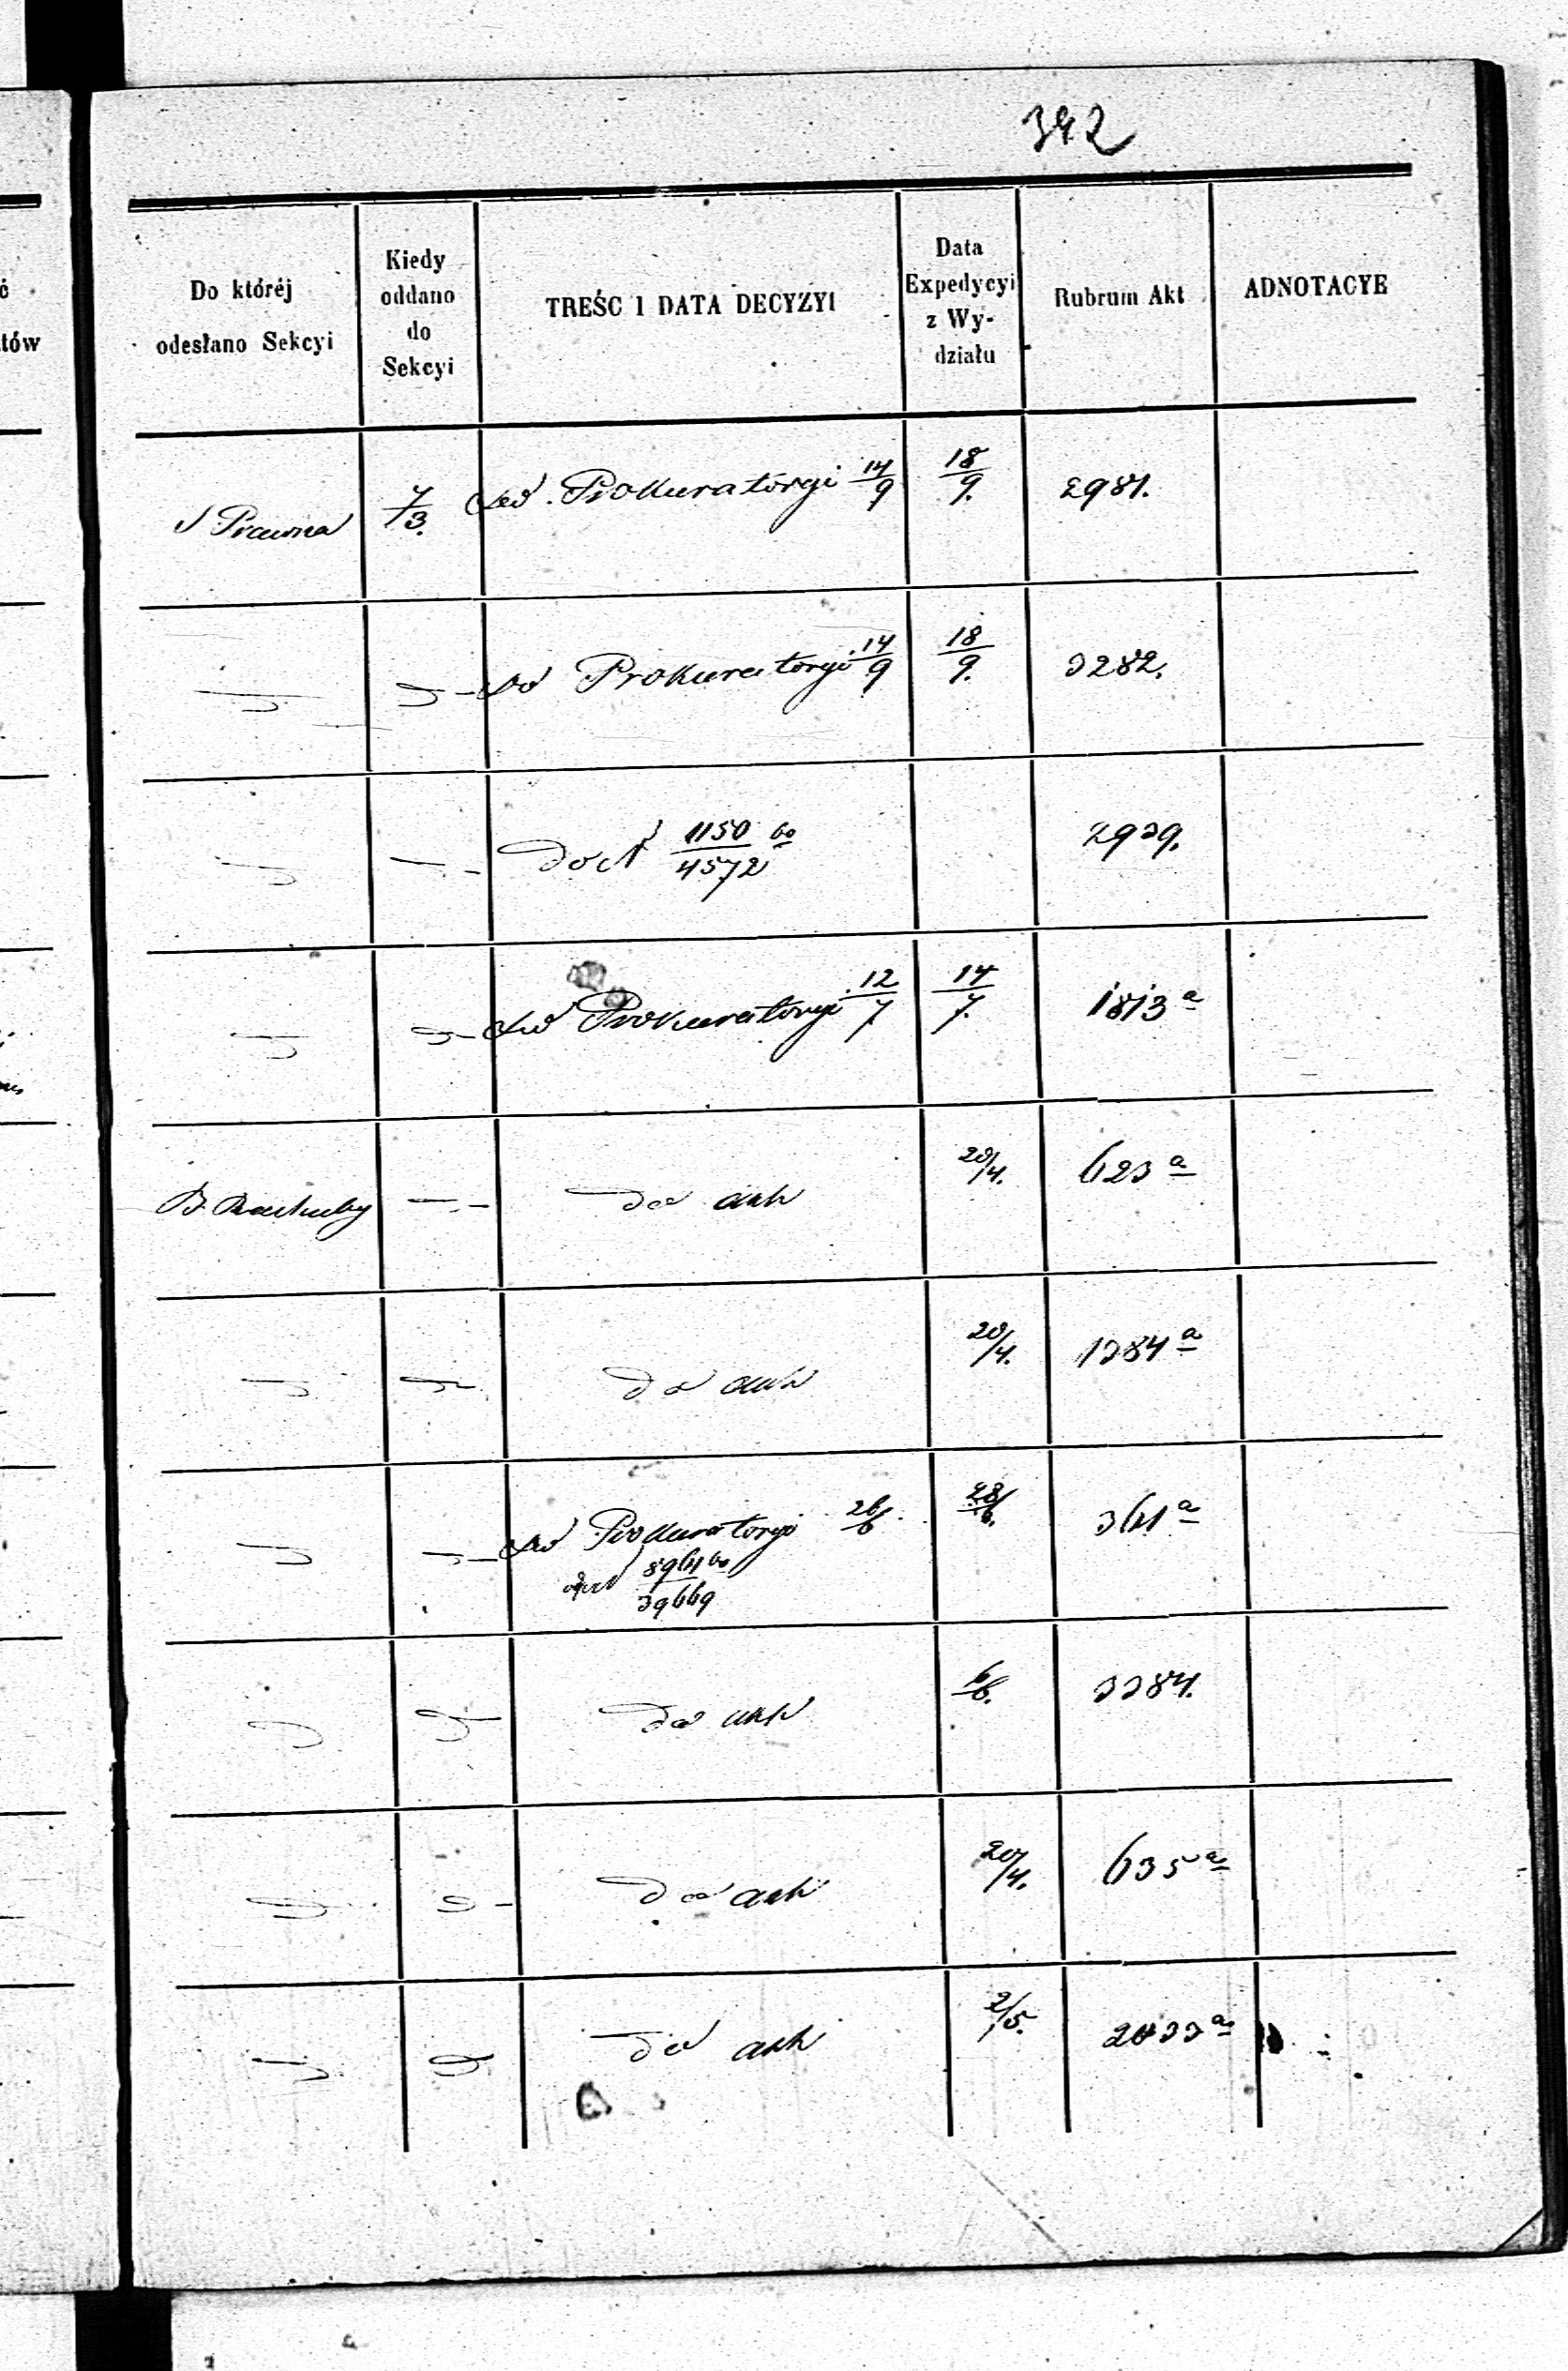 392
Do któréj odesłano Sekcyi
Kiedy oddano do Sekcyi
TREŚC I DATA DECYZYI
Data Expedycyi z Wy- działu
Rubrum Akt
ADNOTACYE
Prawna 7/3. Do Prokuratoryi 14/9 18/9. 2981.
Do Prokuratoryi 14/9 18/9. 3282.
do N 1150/4572 2939.
Do Prokuratoryi 12/7 14/7. 1813 a
B. Rachuby do akt 20/4. 623 a
do akt 20/4. 1384 a
Do Prokuratoryi 26/6. 28/6. 361 a
8964/39669
do akt 6/6. 3384.
do akt 20/4. 635 a
do akt 2/5. 2033 a